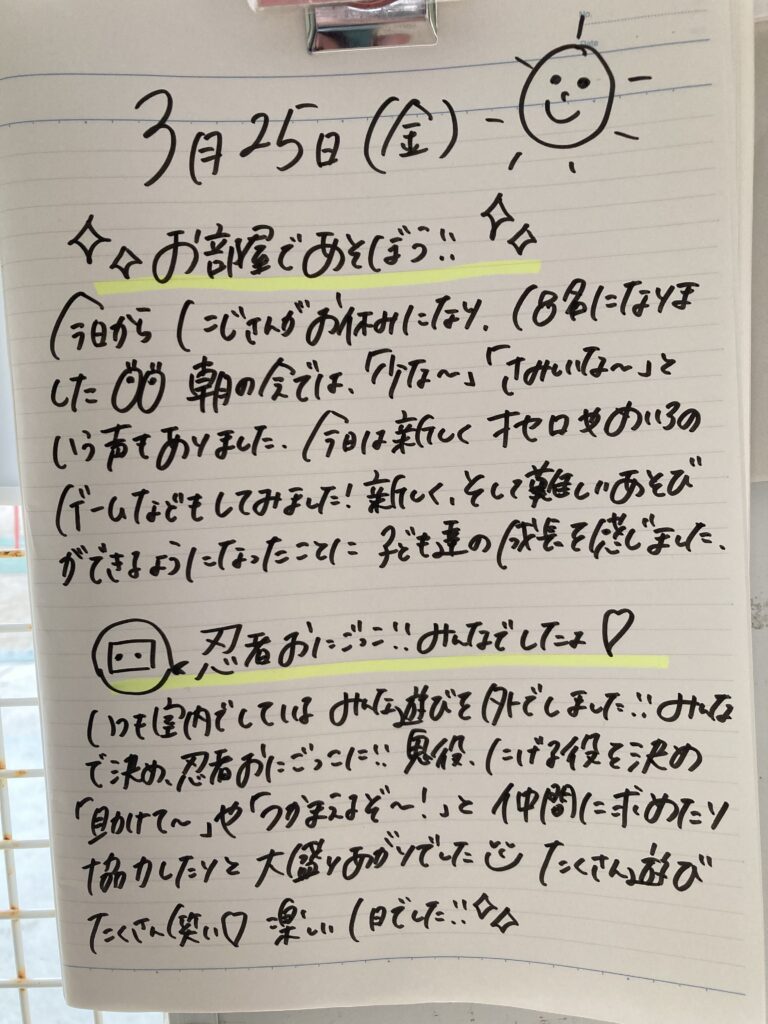 3月25日(金)
お部屋であそぼう!!
今日から にじさんがお休みになり、18名になりま
した 朝の会では、「少な〜」「さみしいな〜」と
いう声もありました。今日は新しく オセロやめいろの
ゲームなどもしてみました!新しく、そして難しいあそび
ができるようになったことに 子ども達の成長を感じました。
忍者おにごっこ!!みんなでしたよ♡
いつも室内でしている みんな遊びを外でしました!!みんな
で決め、忍者おにごっこに!! 鬼役、にげる役を決め
「助けて〜」や「つかまえるぞ〜!」と 仲間に求めたり
協力したりと 大盛りあがりでした たくさん遊び
たくさん笑い♡ 楽しい1日でした!!